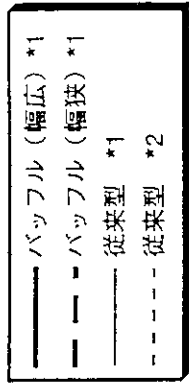 バッフル（幅広）*1
バッフル（幅狭）*1
従来型 *1
従来型 *2